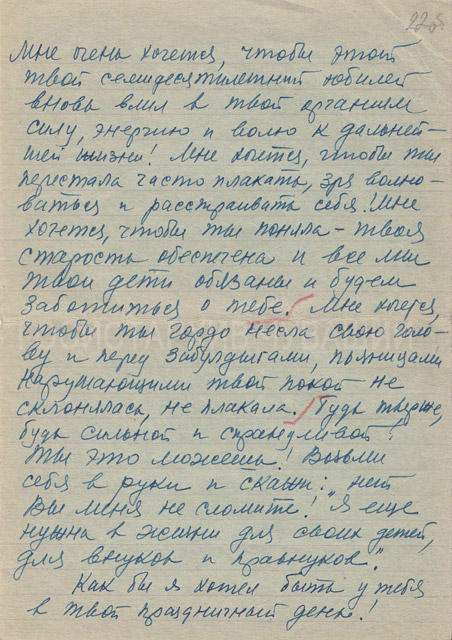 22об
Мне очень хочется, чтобы этот
твой семидесятилетний юбилей
вновь влил в твой организм
силу, энергию и волю к дальней-
шей жизни! Мне хочется, чтобы ты
перестала часто плакать, зря волно-
ваться и расстраивать себя! Мне
хочется, чтобы ты поняла - твоя
старость обеспечена и все мы
твои дети обязаны и будем
заботиться о тебе. Мне хочется,
чтобы ты гордо несла свою голо-
ву и перед забулдыгами, пьяницами
нарушающими твой покой не
склонялась, не плакала. Будь тверже,
будь сильной и справедливой!
Ты это можешь! Возьми
себя в руки и скажи: „нет
Вы меня не сломите! Я еще
нужна в жизни для своих детей,
для внуков и правнуков".
Как бы я хотел быть у тебя
в твой праздничный день!